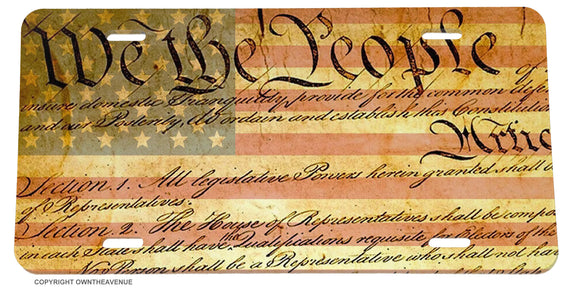 We the People of
insure domestic Tranquility, provide for the common defen
and our Posterity, do ordain and establish this Constitution
Artic
Section 1. All legislative Powers herein granted shall
of Representatives.
Section 2. The House of Representatives shall be compo
in each State shall have the Qualifications requisite for Electors of the
No Person shall be a Representative who shall not hav
COPYRIGHT OWNTHEAVENUE